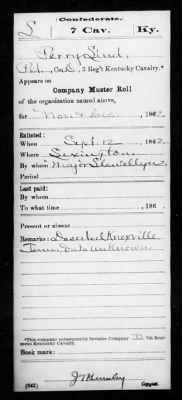 Confederate.
L 7 Cav. Ky.
Perry Lind,
Pvt, Co. , 3 Reg't Kentucky Cavalry.*
Appears on
Company Muster Roll
of the organization named above,
for Nov & Dec, 1862.
Enlisted:
When Sept. 12, 1862.
Where Lexington
By whom Major Llewellyn
Period
Last paid:
By whom
To what time , 186 .
Present or absent
Remarks: Deserted Knoxville
Tenn. Date unknown.
*This company subsequently became Company D, 7th Regiment Kentucky Cavalry.
Book mark:
(642) Copyist.